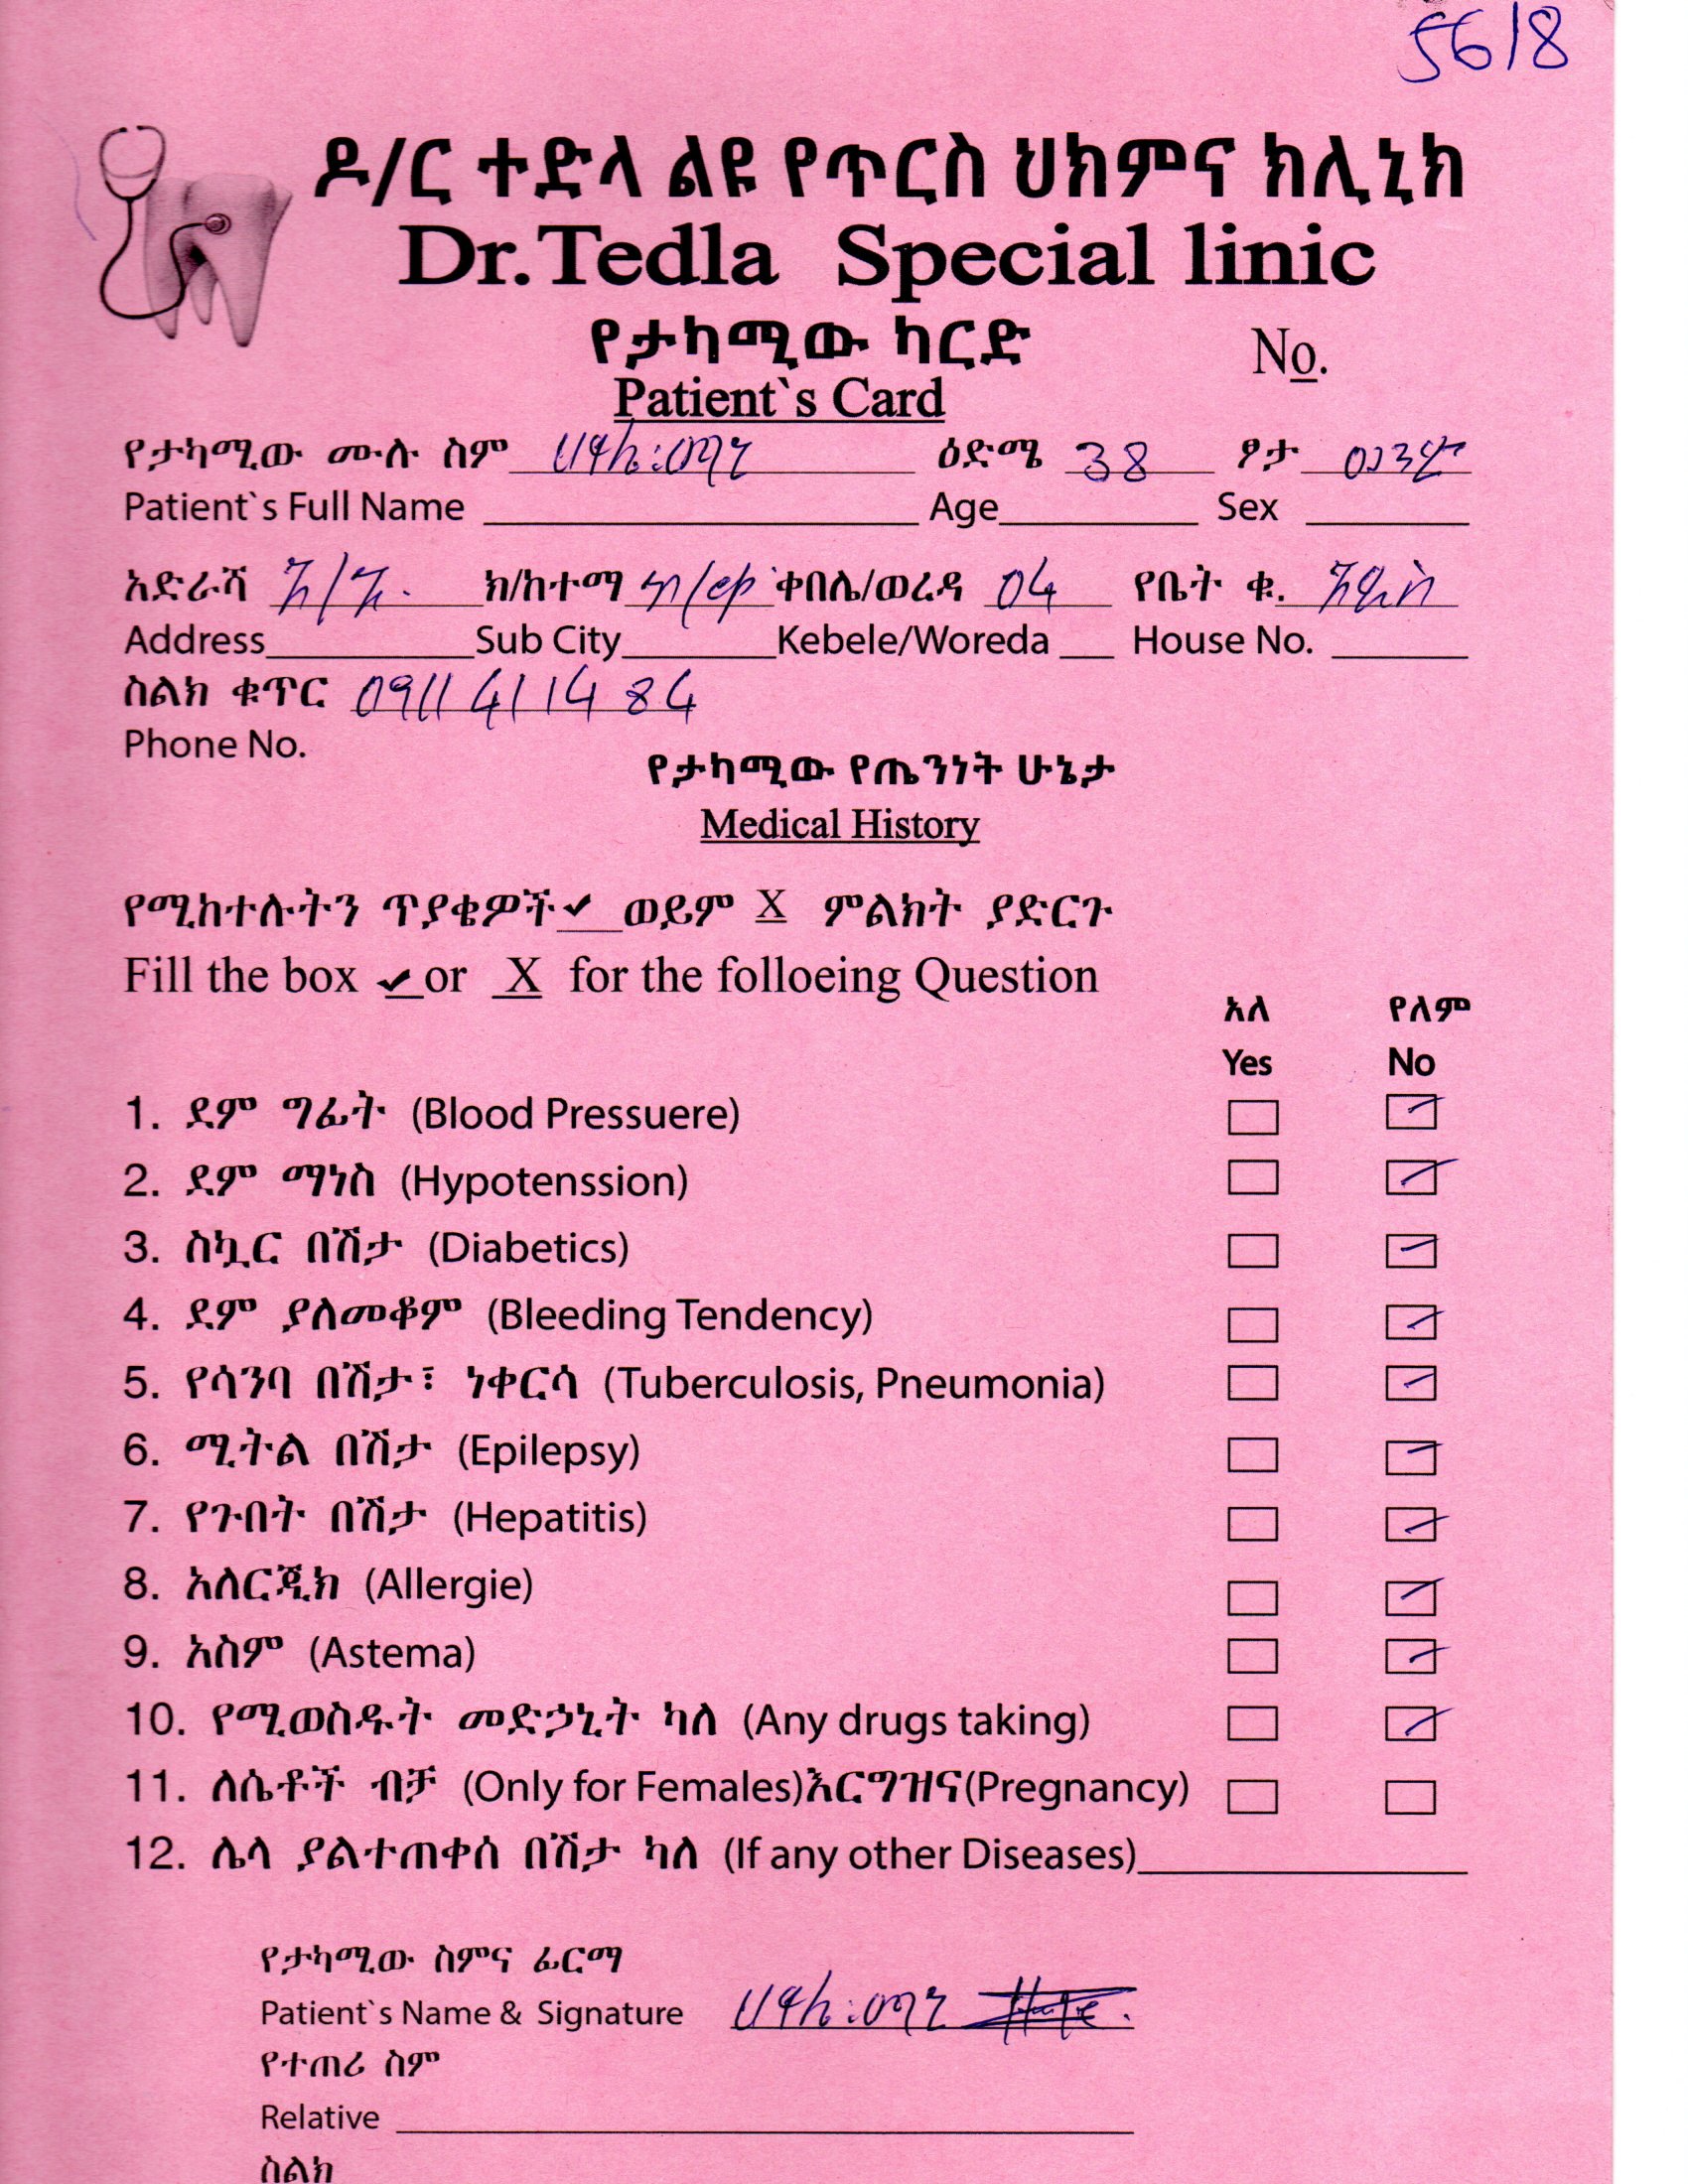 5618
ዶ/ር ተድላ ልዩ የጥርስ ህክምና ክሊኒክ
Dr.Tedla Special linic
የታካሚው ካርድ No.
Patient`s Card
የታካሚው ሙሉ ስም ዕድሜ 38 ፆታ ወንድ
Patient`s Full Name Age Sex
አድራሻ አ/አ. ክ/ከተማ ቀበሌ/ወረዳ 04 የቤት ቁ. አዲስ
Address Sub City Kebele/Woreda House No.
ስልክ ቁጥር 0911 41 14 84
Phone No.
የታካሚው የጤንነት ሁኔታ
Medical History
የሚከተሉትን ጥያቄዎች ✔ ወይም X ምልክት ያድርጉ
Fill the box ✔ or X for the folloeing Question
አለ የለም
Yes No
1. ደም ግፊት (Blood Pressuere)
2. ደም ማነስ (Hypotenssion)
3. ስኳር በሽታ (Diabetics)
4. ደም ያለመቆም (Bleeding Tendency)
5. የሳንባ በሽታ፣ ነቀርሳ (Tuberculosis, Pneumonia)
6. ሚትል በሽታ (Epilepsy)
7. የጉበት በሽታ (Hepatitis)
8. አለርጂክ (Allergie)
9. አስም (Astema)
10. የሚወስዱት መድኃኒት ካለ (Any drugs taking)
11. ለሴቶች ብቻ (Only for Females)እርግዝና(Pregnancy)
12. ሌላ ያልተጠቀሰ በሽታ ካለ (If any other Diseases)
የታካሚው ስምና ፊርማ
Patient`s Name & Signature
የተጠሪ ስም
Relative
ስልክ